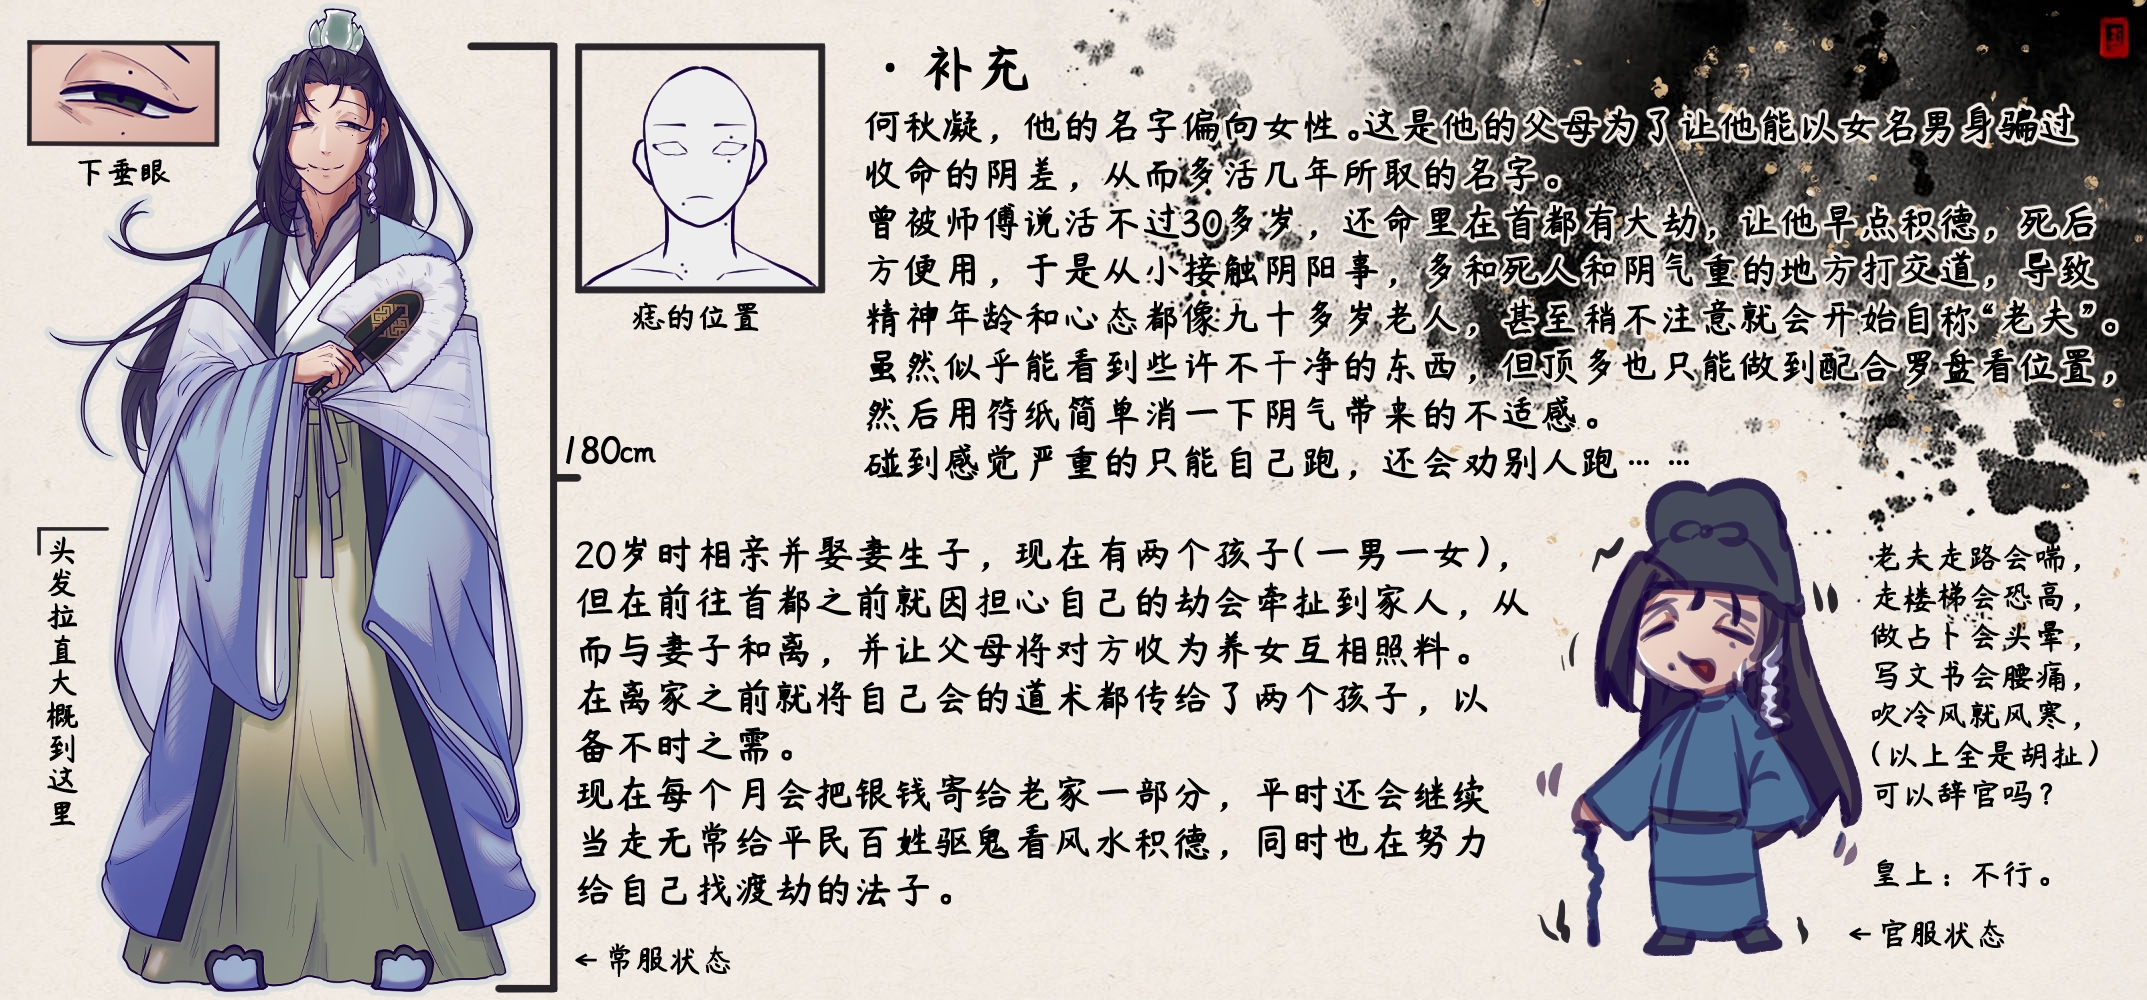 下垂眼
头发拉直大概到这里
180cm
痣的位置
·补充
何秋凝，他的名字偏向女性。这是他的父母为了让他能以女名男身骗过
收命的阴差，从而多活几年所取的名字。
曾被师傅说活不过30多岁，还命里在首都有大劫，让他早点积德，死后
方便用，于是从小接触阴阳事，多和死人和阴气重的地方打交道，导致
精神年龄和心态都像九十多岁老人，甚至稍不注意就会开始自称“老夫”。
虽然似乎能看到些许不干净的东西，但顶多也只能做到配合罗盘看位置，
然后用符纸简单消一下阴气带来的不适感。
碰到感觉严重的只能自己跑，还会劝别人跑……
20岁时相亲并娶妻生子，现在有两个孩子(一男一女)，
但在前往首都之前就因担心自己的劫会牵扯到家人，从
而与妻子和离，并让父母将对方收为养女互相照料。
在离家之前就将自己会的道术都传给了两个孩子，以
备不时之需。
现在每个月会把银钱寄给老家一部分，平时还会继续
当走无常给平民百姓驱鬼看风水积德，同时也在努力
给自己找渡劫的法子。
←常服状态
老夫走路会喘，
走楼梯会恐高，
做占卜会头晕，
写文书会腰痛，
吹冷风就风寒，
(以上全是胡扯)
可以辞官吗？
皇上：不行。
←官服状态